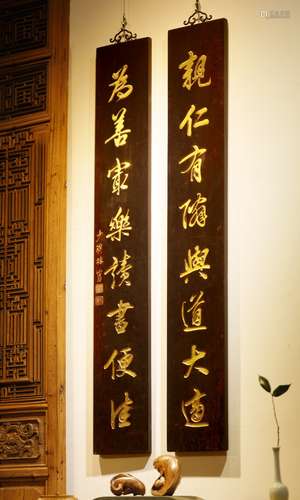 親仁有隣與道大適
為善最樂讀書便佳